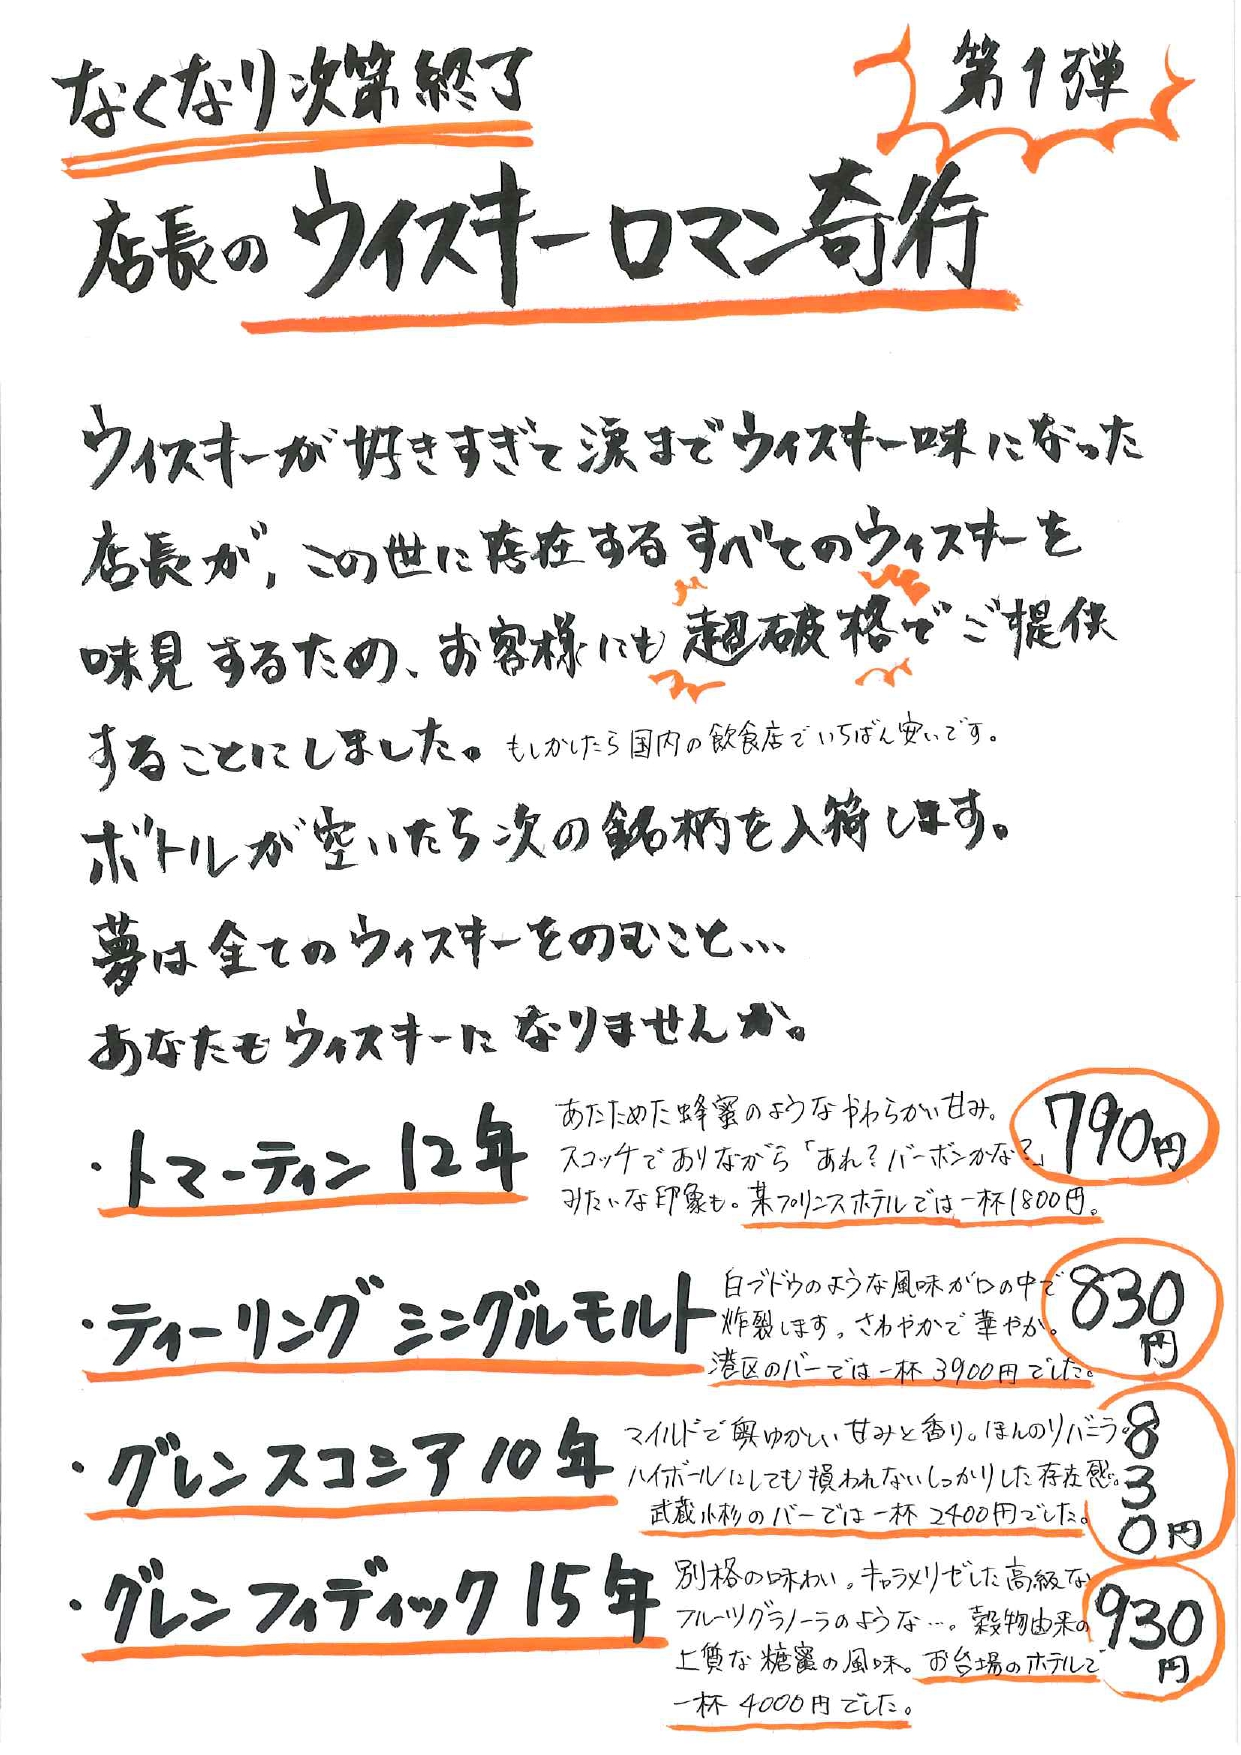 なくなり次第終了
第1弾
店長のウイスキーロマン奇行
ウィスキーが好きすぎて涙までウィスキー味になった
店長が、この世に存在するすべてのウィスキーを
味見するため、お客様にも超破格でご提供
することにしました。もしかしたら国内の飲食店でいちばん安いです。
ボトルが空いたら次の銘柄を入荷します。
夢は全てのウィスキーをのむこと…
あなたもウィスキーになりませんか。
・トマーティン12年
あたためた蜂蜜のようなやわらかい甘み。
スコッチでありながら「あれ?バーボンかな?」
みたいな印象も。某プリンスホテルでは一杯1800円。
790円
・ティーリングシングルモルト
白ブドウのような風味が口の中で
炸裂します。さわやかで華やか。
港区のバーでは一杯3900円でした。
830
円
・グレンスコシア10年
マイルドで奥ゆかしい甘みと香り。ほんのりバニラ。
ハイボールにしても損われないしっかりした存在感。
武蔵小杉のバーでは一杯2400円でした。
8
3
0円
・グレンフィディック15年
別格の味わい。キャラメリゼした高級な
フルーツグラノーラのような…。穀物由来の
上質な糖蜜の風味。お台場のホテルで
一杯4000円でした。
930
円